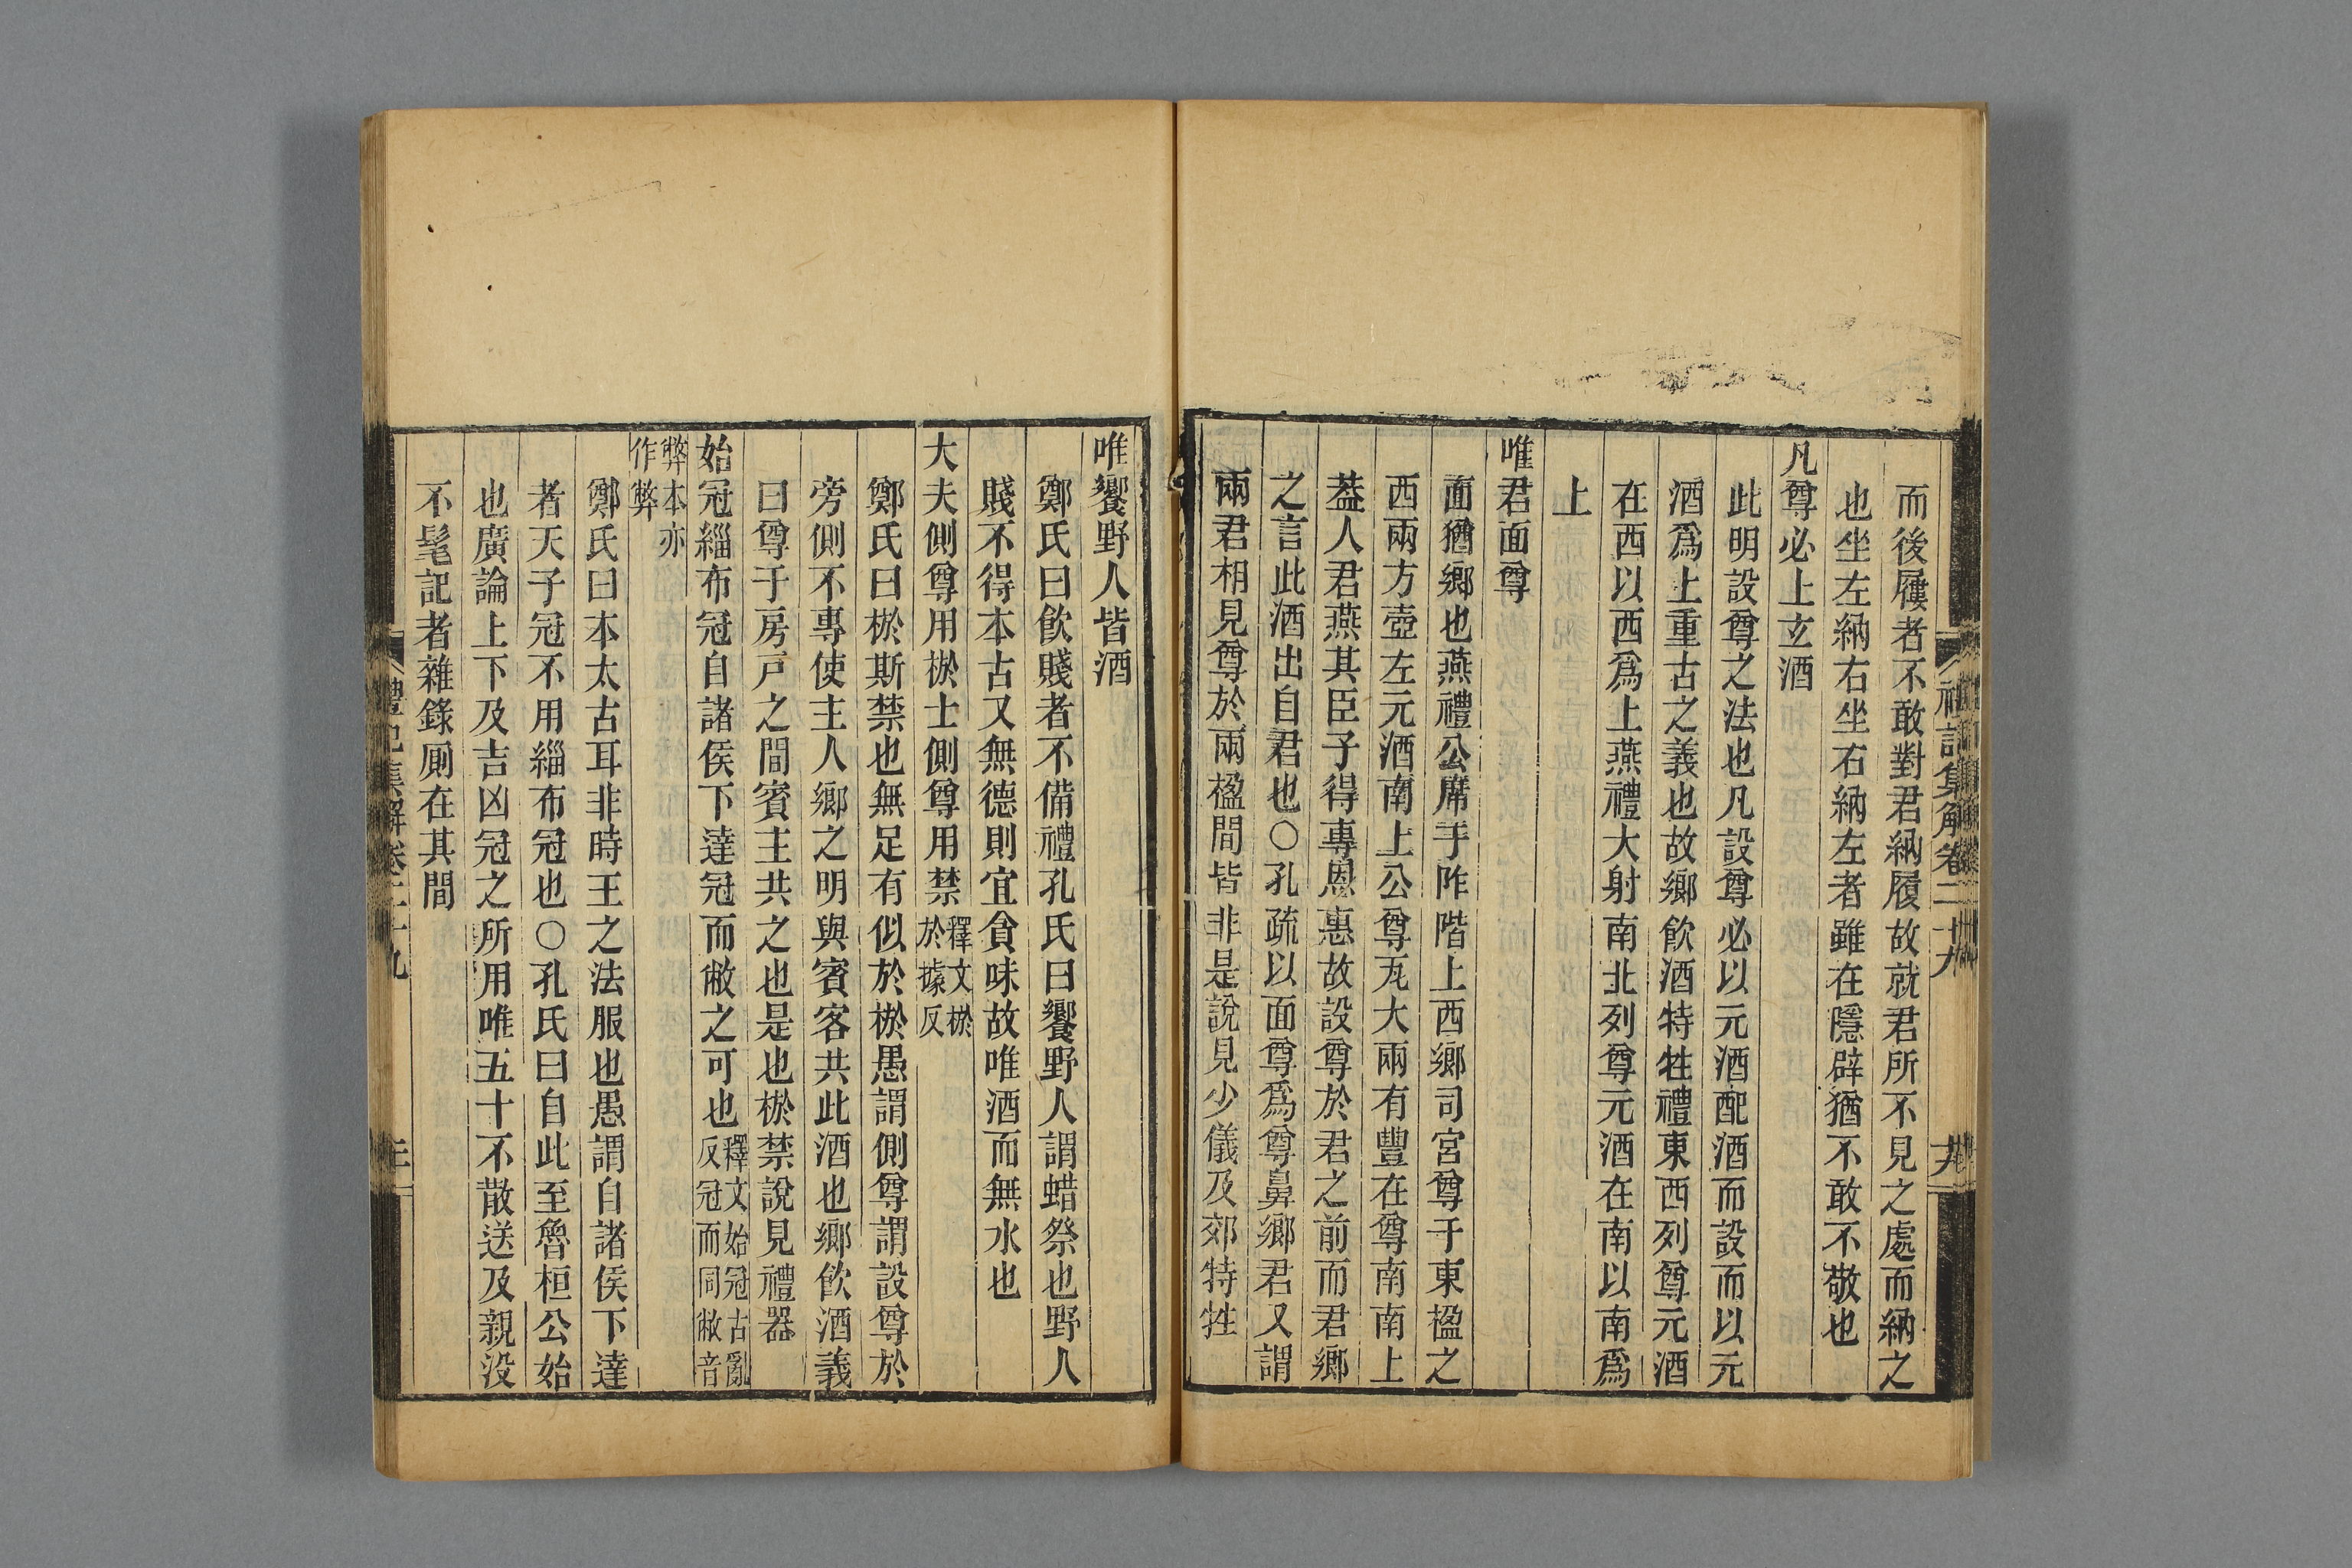 而後屨者不敢對君納履故就君所不見之處而納之
也坐左納右坐右納左者雖在隱辟猶不敢不敬也
凡尊必上玄酒
此明設尊之法也凡設尊必以元酒配酒而設而以元
酒爲上重古之義也故鄉飲酒特牲禮東西列尊元酒
在西以西爲上燕禮大射南北列尊元酒在南以南爲
上
唯君面尊
面猶鄉也燕禮公席于阼階上西鄉司宮尊于東楹之
西兩方壺左元酒南上公尊瓦大兩有豐在尊南南上
葢人君燕其臣子得專恩惠故設尊於君之前而君鄉
之言此酒出自君也○孔疏以面尊爲尊鼻鄉君又謂
兩君相見尊於兩楹間皆非是說見少儀及郊特牲
唯饗野人皆酒
鄭氏曰飲賤者不備禮孔氏曰饗野人謂蜡祭也野人
賤不得本古又無德則宜貪味故唯酒而無水也
大夫側尊用棜士側尊用禁釋文棜於據反
鄭氏曰棜斯禁也無足有似於棜愚謂側尊謂設尊於
旁側不專使主人鄉之明與賓客共此酒也鄉飲酒義
曰尊于房戸之間賓主共之也是也棜禁說見禮器
始冠緇布冠自諸侯下達冠而敝之可也釋文始冠古亂反冠而同敝音
弊本亦作弊
鄭氏曰本太古耳非時王之法服也愚謂自諸侯下達
者天子冠不用緇布冠也○孔氏曰自此至魯桓公始
也廣論上下及吉凶冠之所用唯五十不散送及親没
不髦記者雜錄厠在其間
禮記集解卷二十九